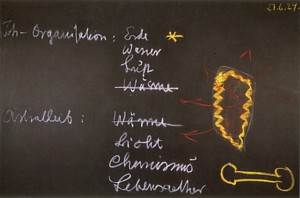 27.6.24.
Ich-Organisation: Erde
Wasser
Luft
Wärme
Astralleib: Wärme
Licht
Chemismus
Lebensaether